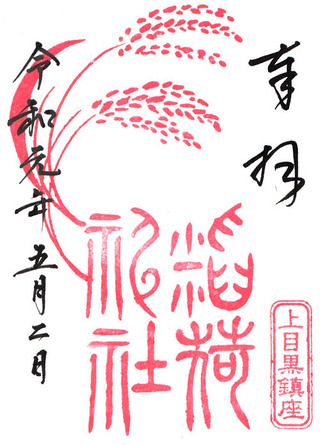 奉拝
上目黒鎮座
稲荷
神社
令和元年五月二日